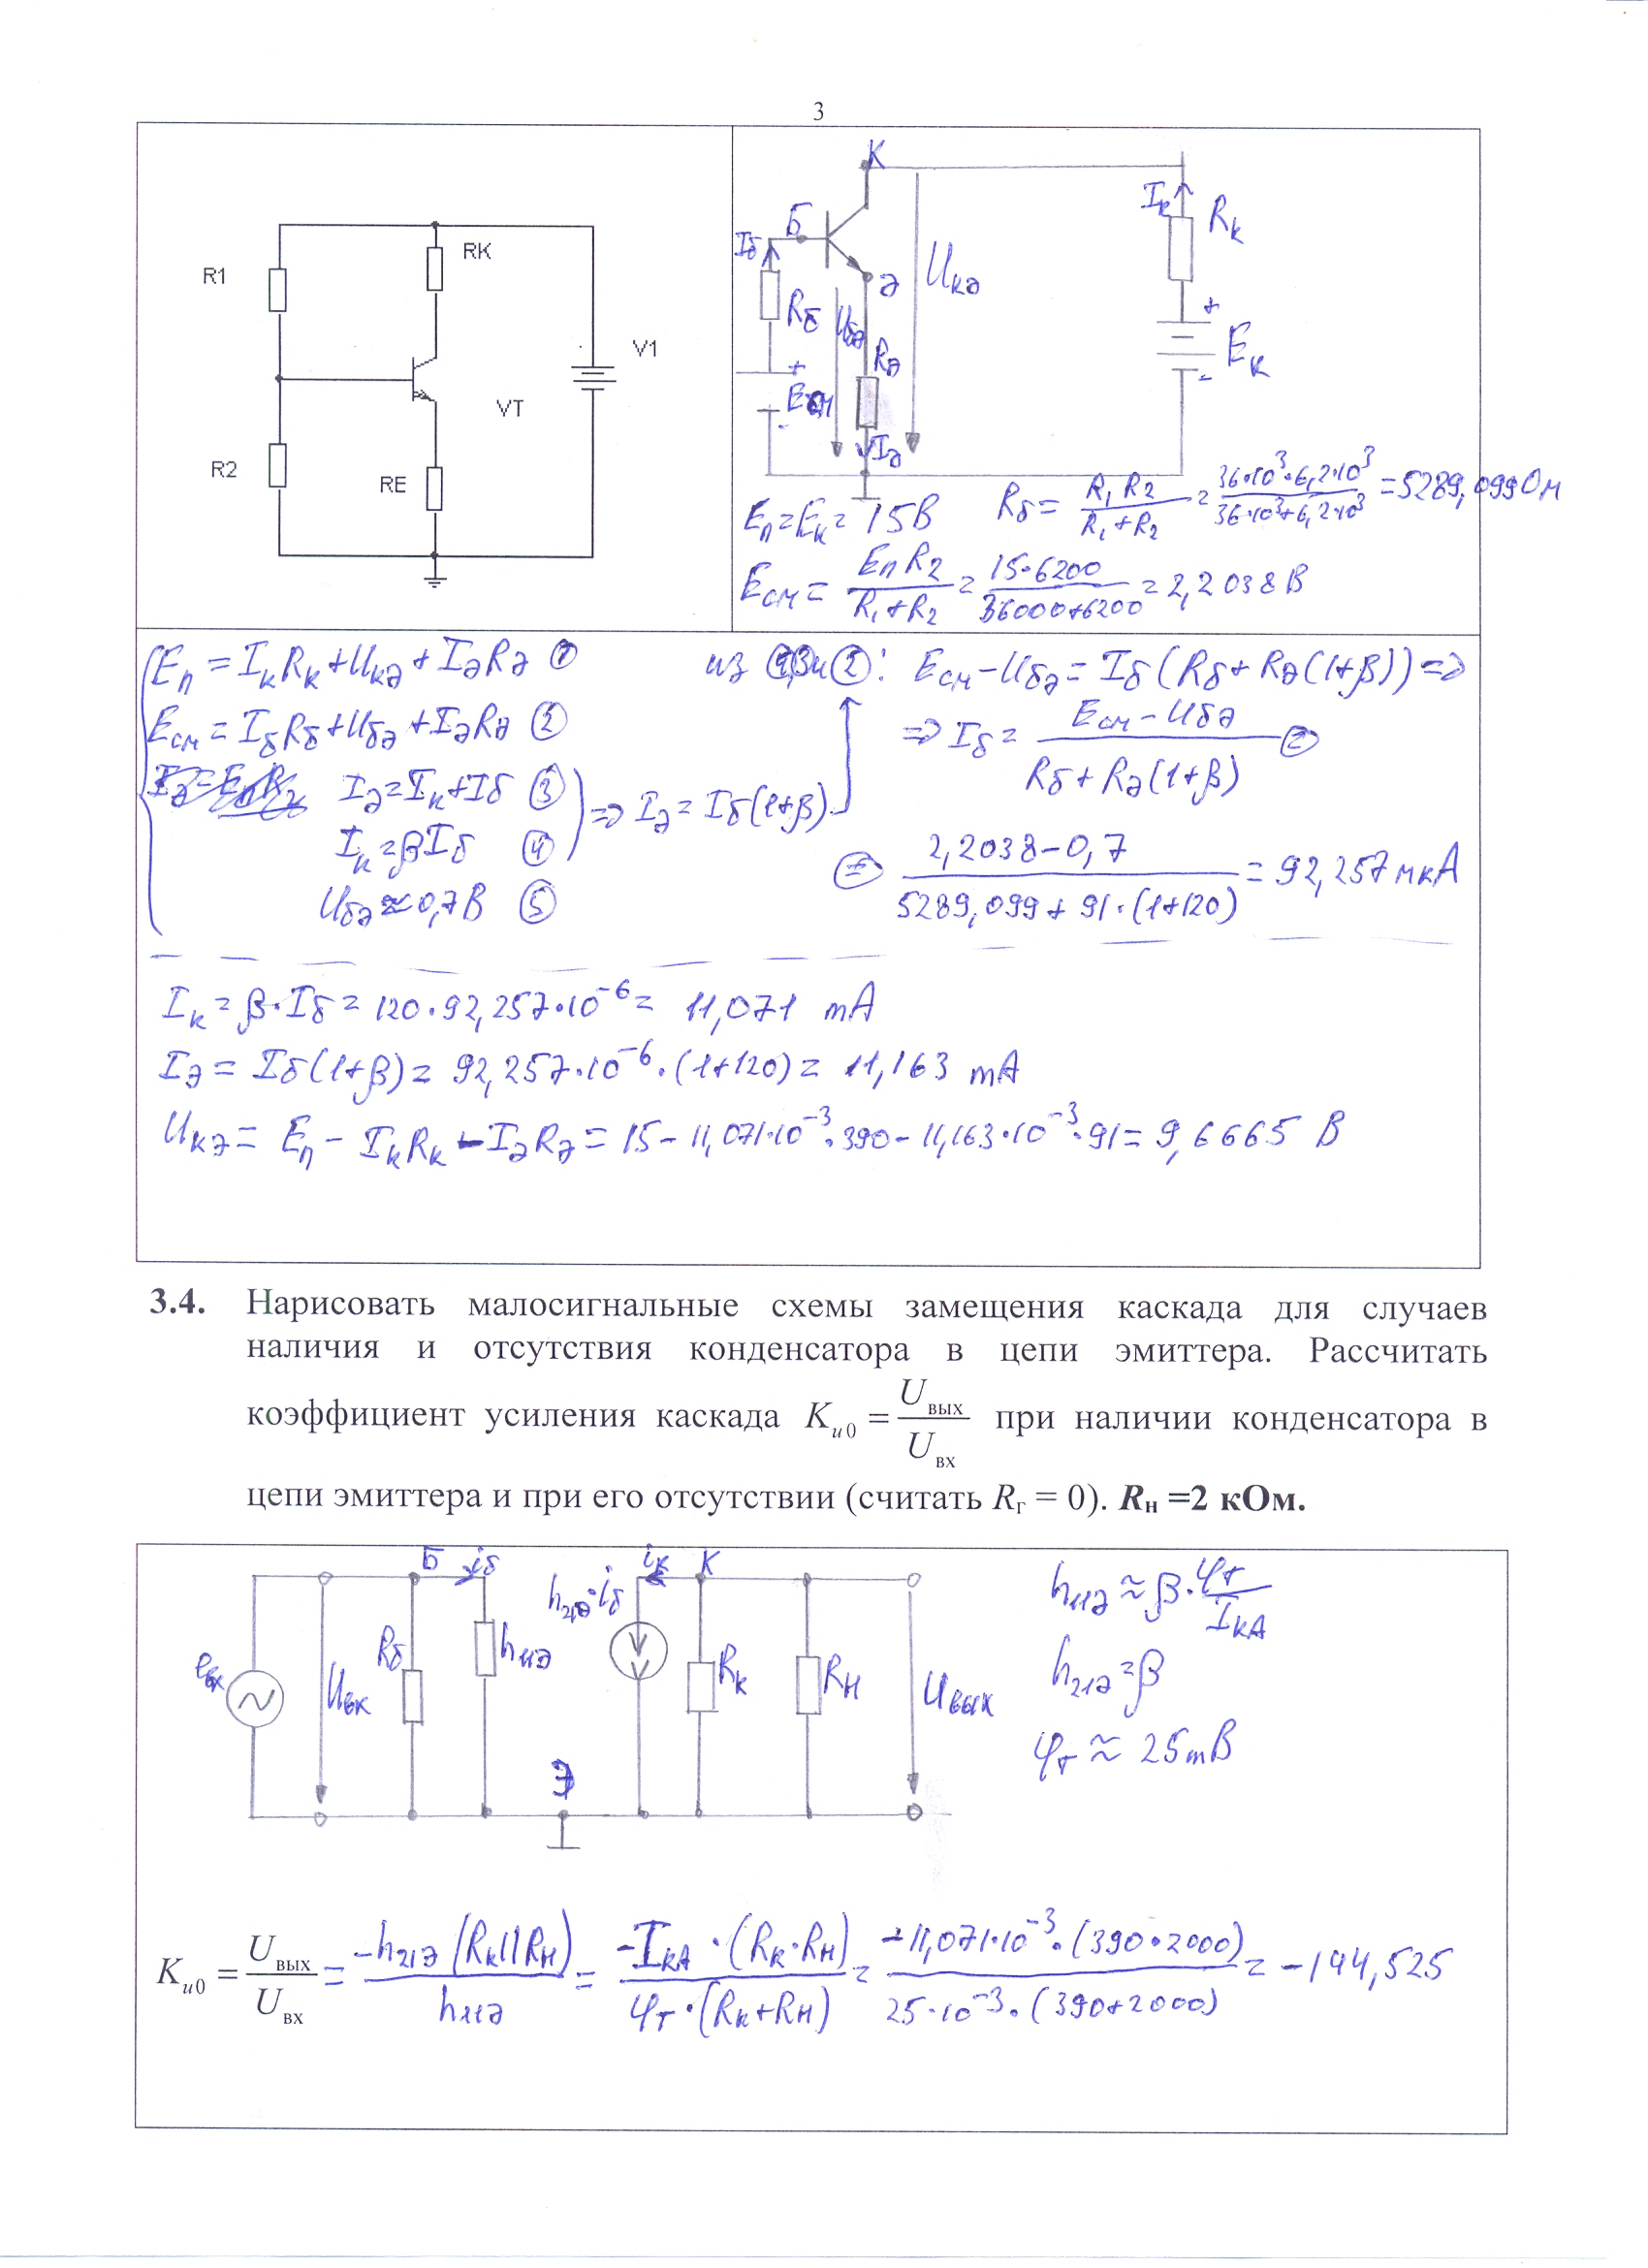 3
R1
RK
R2
RE
VT
V1
К
Б
Iб
Rб
Uбэ
Э
Uкэ
Rэ
Iэ
Eсм
+
-
Iк
Rк
+
Eк
-
Eп = Eк = 15В
Rб = R1 R2 / (R1 + R2) = 36·10³·6,2·10³ / (36·10³+6,2·10³) = 5289,099 Ом
Eсм = Eп R2 / (R1 + R2) = 15·6200 / (36000+6200) = 2,2038 В
Eп = IкRк + Uкэ + IэRэ ①
Eсм = IбRб + Uбэ + IэRэ ②
Iэ = Iк + Iб ③
Iк = βIб ④
Uбэ ≈ 0,7В ⑤
=> Iэ = Iб(1+β)
из и ②: Eсм – Uбэ = Iб(Rб + Rэ(1+β)) =>
=> Iб = (Eсм – Uбэ) / (Rб + Rэ(1+β)) =
= (2,2038–0,7) / (5289,099 + 91·(1+120)) = 92,257 мкА
Iк = β·Iб = 120·92,257·10⁻⁶ = 11,071 mA
Iэ = Iб(1+β) = 92,257·10⁻⁶·(1+120) = 11,163 mA
Uкэ = Eп – IкRк – IэRэ = 15 – 11,071·10⁻³·390 – 11,163·10⁻³·91 = 9,6665 В
3.4. Нарисовать малосигнальные схемы замещения каскада для случаев
наличия и отсутствия конденсатора в цепи эмиттера. Рассчитать
коэффициент усиления каскада Ku0 = Uвых / Uвх при наличии конденсатора в
цепи эмиттера и при его отсутствии (считать Rг = 0). Rн =2 кОм.
Б
iб
eвх
Uвх
Rб
h11э
Э
h21э·iб
iк
К
Rк
Rн
Uвых
h11э ≈ β·φт / IкА
h21э = β
φт ≈ 25mВ
Ku0 = Uвых / Uвх = –h21э (Rк||Rн) / h11э = –IкА·(Rк·Rн) / (φт·(Rк+Rн)) = –11,071·10⁻³·(390·2000) / (25·10⁻³·(390+2000)) = –144,525